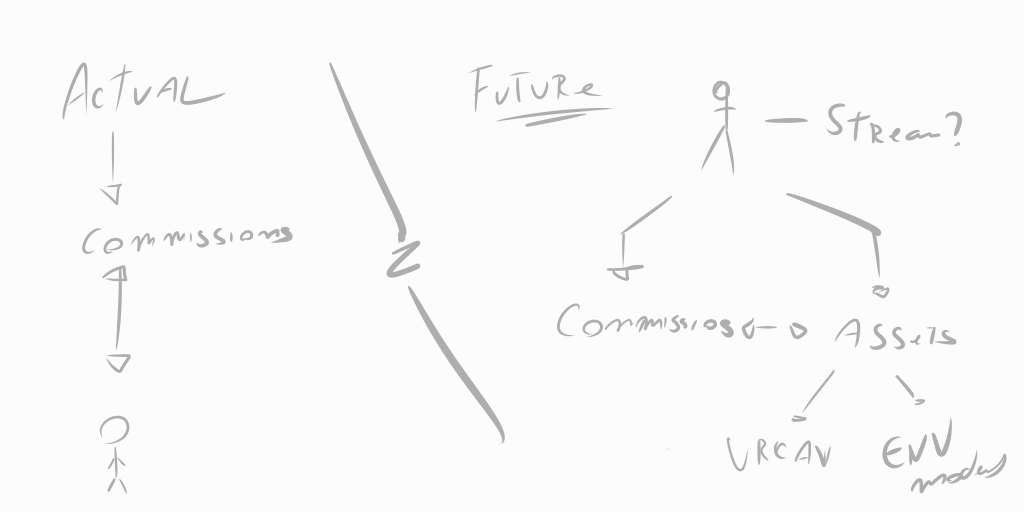 ACTUAL
Commissions
Z
FUTURE
STReam?
Commissios
ASSETS
VRCAV
ENV
models